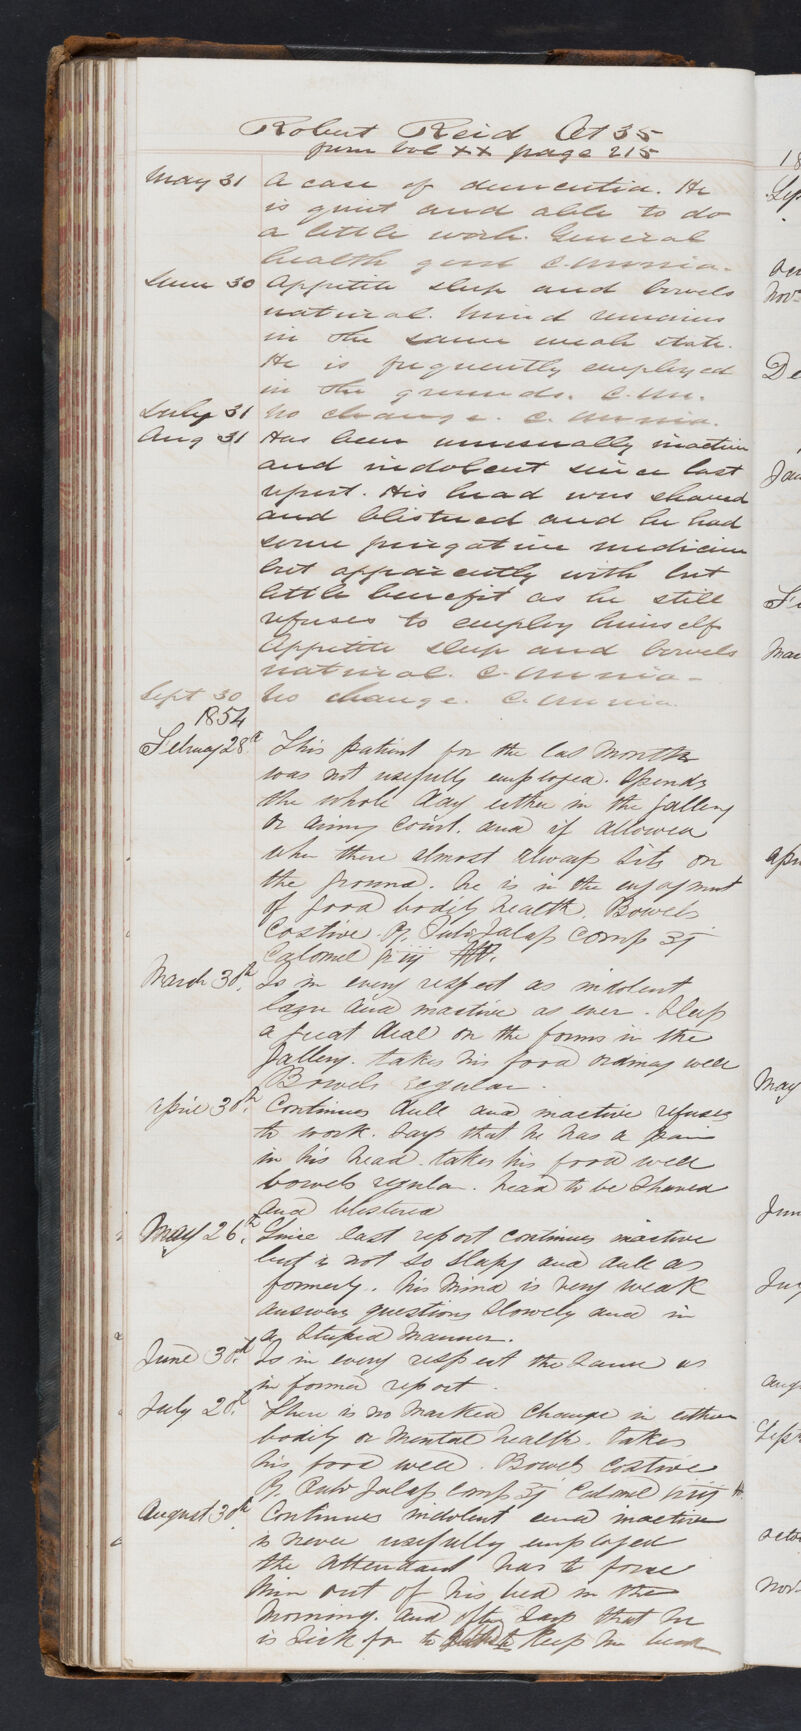 Robert Reid Aet 35
from Vol XX page 215
May 31 A case of dementia. He
is quiet and able to do
a little work. General
health good C. Mania.
June 30 Appetite sleep and bowels
natural. Mind remains
in the same weak state.
He is frequently employed
in the grounds. C. M.
July 31 No change. C. Mania.
Aug 31 Has been unusually inactive
and indolent since last
report. His head was shaved
and blistered and he had
some purgative medicine
but apparently with but
little benefit as he still
refuses to employ himself
Appetite sleep and bowels
natural. C. Mania.
Sept 30 No change. C. Mania.
1854
Februay 28th This patient for the las months
was not usefully employed. Spends
the whole day either in the gallery
or airing court. and if allowed
when there almost always sits on
the ground. he is in the enjoyment
of good bodily health. Bowels
Costive. Rx Pulv Jalap Comp ʒj
Calomel gr iij
March 30th. Is in every respect as indolent
lazy and inactive as ever. Sleep
a great deal on the forms in the
Gallery. takes his food ordinary well
Bowels regular.
April 30th. Continues dull and inactive refuses
to work. Says that he has a pain
in his head. takes his food well
bowels regular. head to be shaved
and blistered
May 26th. Since last report continues inactive
but is not so slepy and dull as
formerly. his mind is very weak
answers questions slowely and in
a stupid manner.
June 30th. Is in every respect the same as
in former report.
July 20th. There is no marked change in either
bodily or mental health. takes
his food well. Bowels costive
Rx Pulv Jalap Comp ʒj Calomel gr iij
August 30th Continues indolent and inactive
is never usefully employed
the attendant has to force
him out of his bed in the
morning. and often says that he
is sick for to keep in bed
18
Sep
Nov
De
Jan
Mar
Apri
May
June
July
Aug
Sept
Octo
Nov